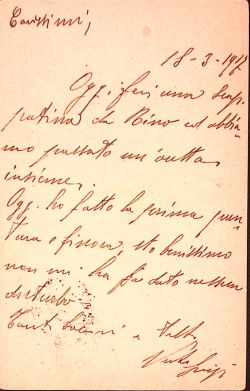 Carissimi,
18-3-917
Oggi feci una scap
patina da Rino ed abbia
mo passato un'oretta
insieme.
Oggi ho fatto la prima pun
tura e finora sto benissimo
non mi ha fa dato nessun
disturbo
Tanti bacini a tutti